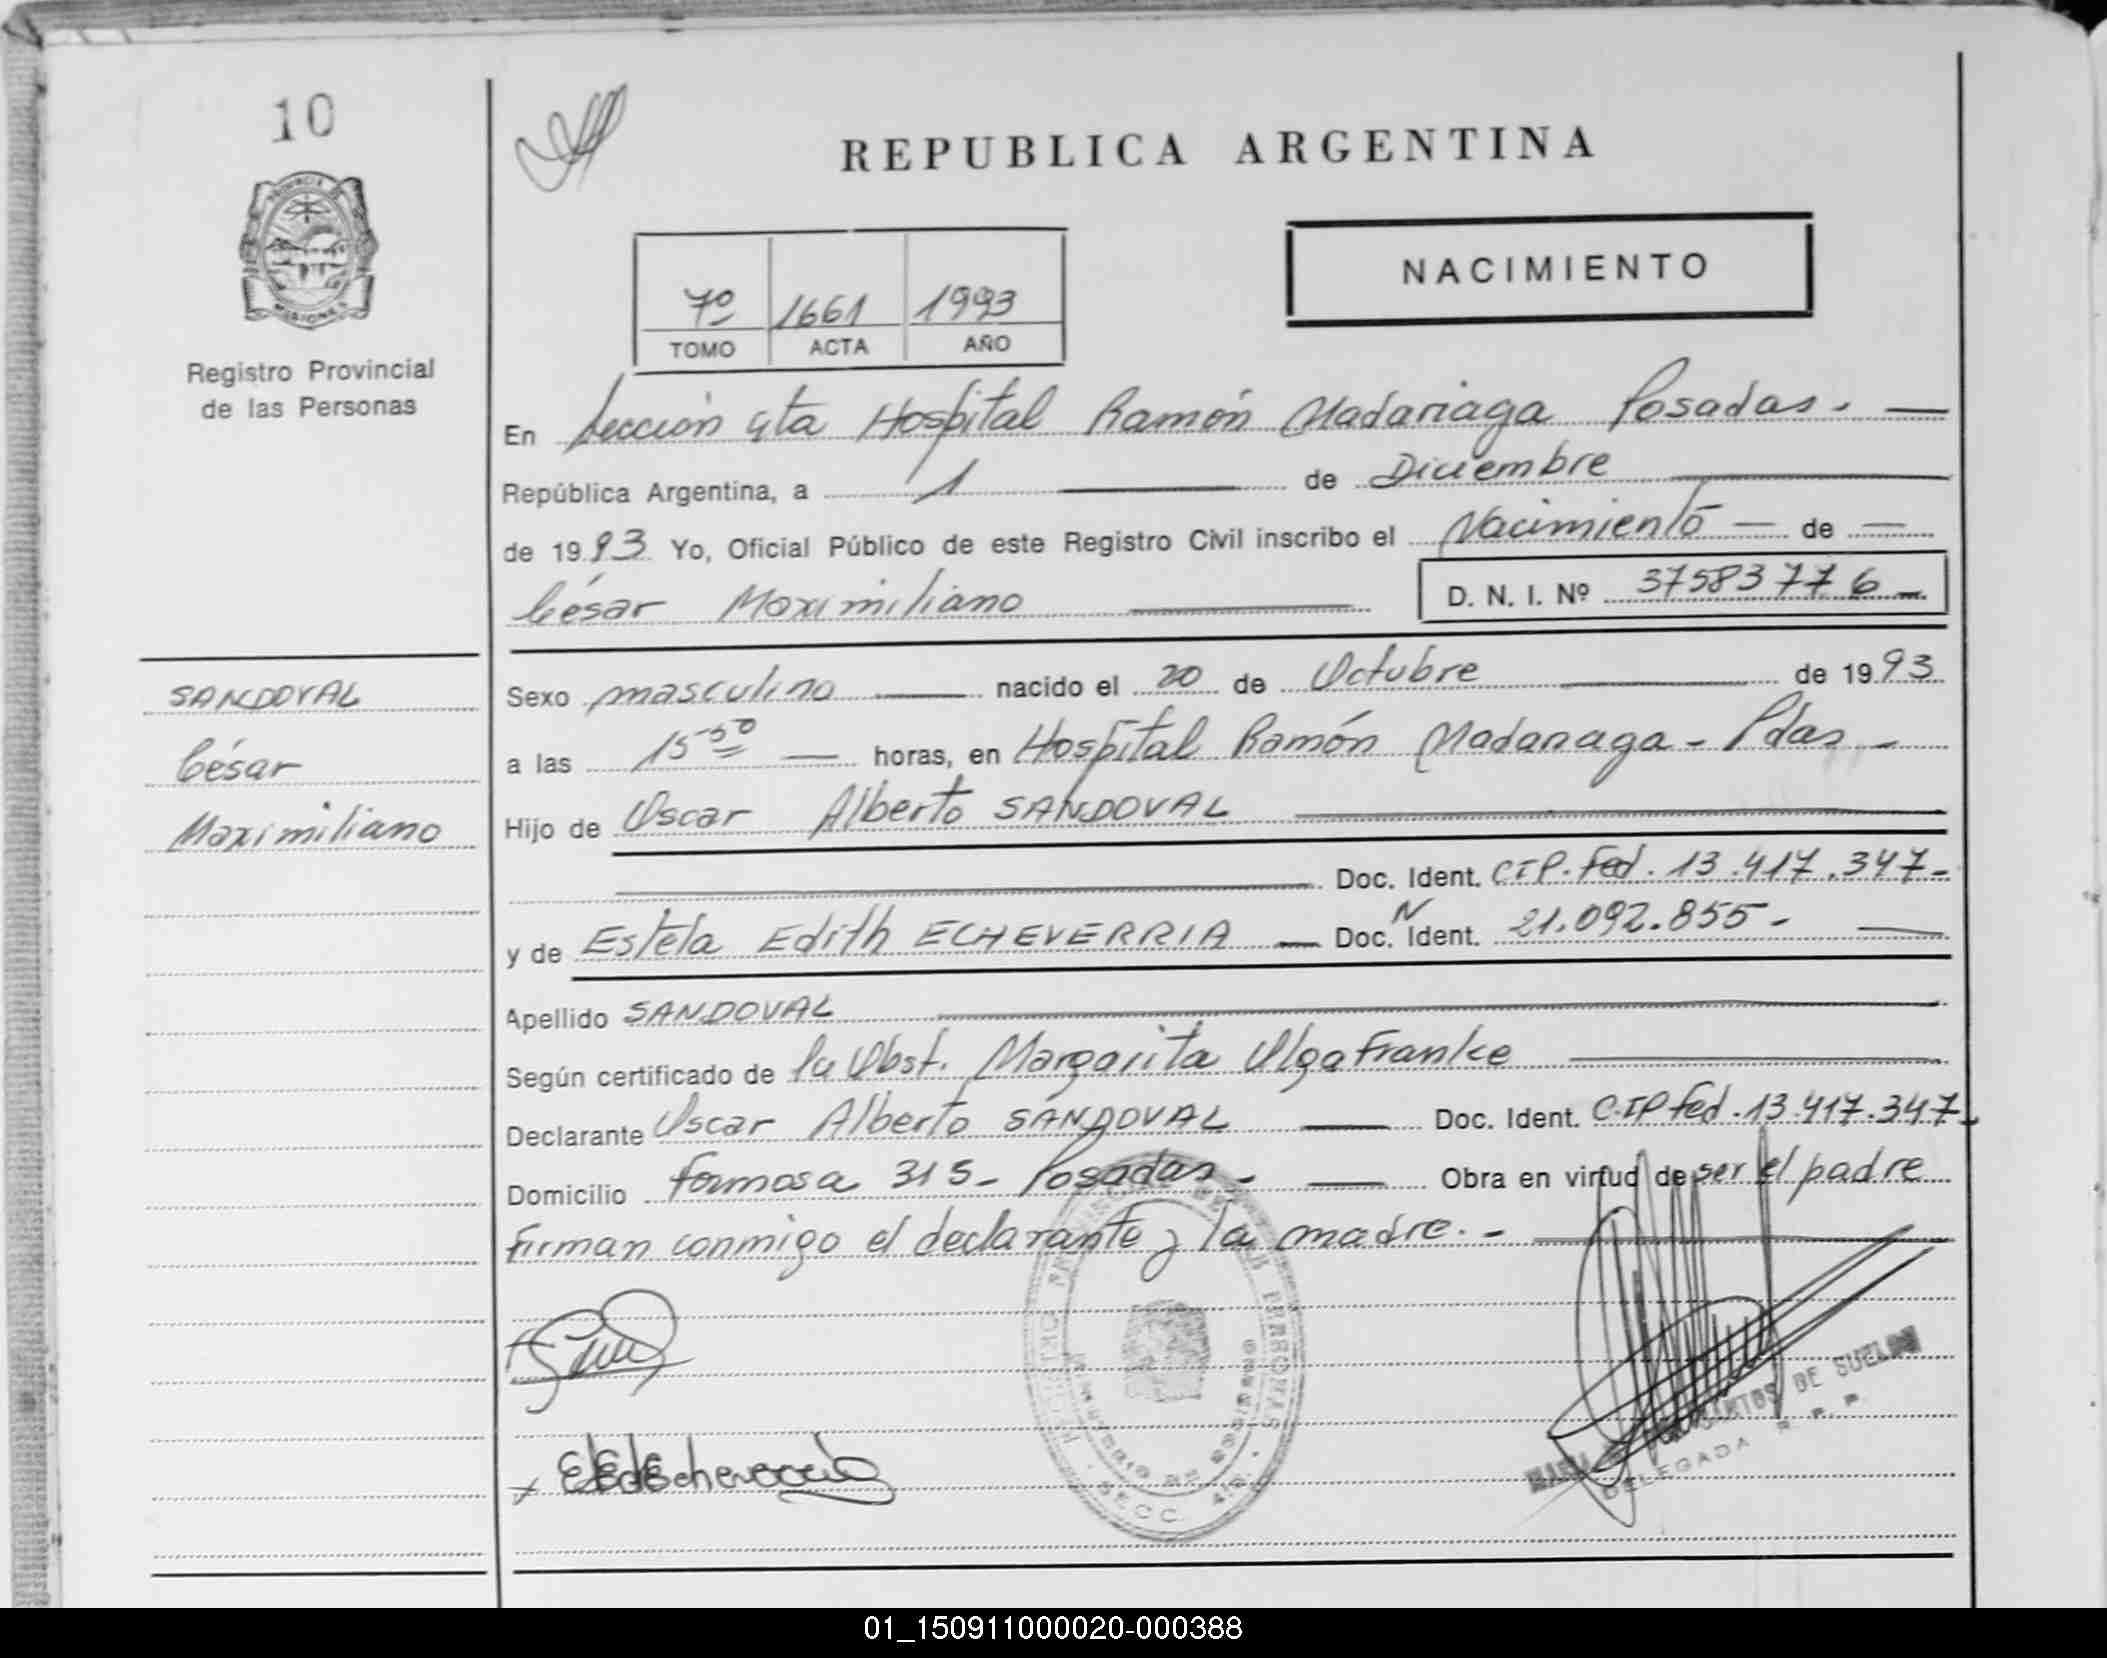 10
PROVINCIA DE
MISIONES
Registro Provincial
de las Personas
SANDOVAL
César
Maximiliano
REPUBLICA ARGENTINA
7º 1661 1993
TOMO ACTA AÑO
NACIMIENTO
En Sección 4ta Hospital Ramón Madariaga Posadas. —
República Argentina, a 1 — de Diciembre —
de 1993 Yo, Oficial Público de este Registro Civil inscribo el Nacimiento — de —
César Maximiliano — D. N. I. Nº 37583776 —
Sexo masculino — nacido el 20 de Octubre — de 1993
a las 15-50 — horas, en Hospital Ramón Madariaga - Pdas -
Hijo de Oscar Alberto SANDOVAL —
— Doc. Ident. CIP. Fed. 13.417.347-
y de Estela Edith ECHEVERRIA — Doc. N Ident. 21.092.855- —
Apellido SANDOVAL —
Según certificado de la Obst. Margarita Olga Franke —
Declarante Oscar Alberto SANDOVAL — Doc. Ident. C.IP fed. 13.417.347-
Domicilio Formosa 315- Posadas - — Obra en virtud de ser el padre
Firman conmigo el declarante y la madre. - —
DE SUELDO
DELEGADA R. P. P.
SECC. 4ta.
01_150911000020-000388